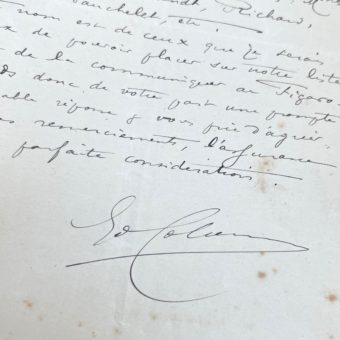 Richard,
nom est de ceux que je serais
de pouvoir placer sur notre liste
de la communiquer au Figaro-
donc de votre part une prompte
réponse & vous prie d'agréer
remerciements, l'assurance
parfaite considération.